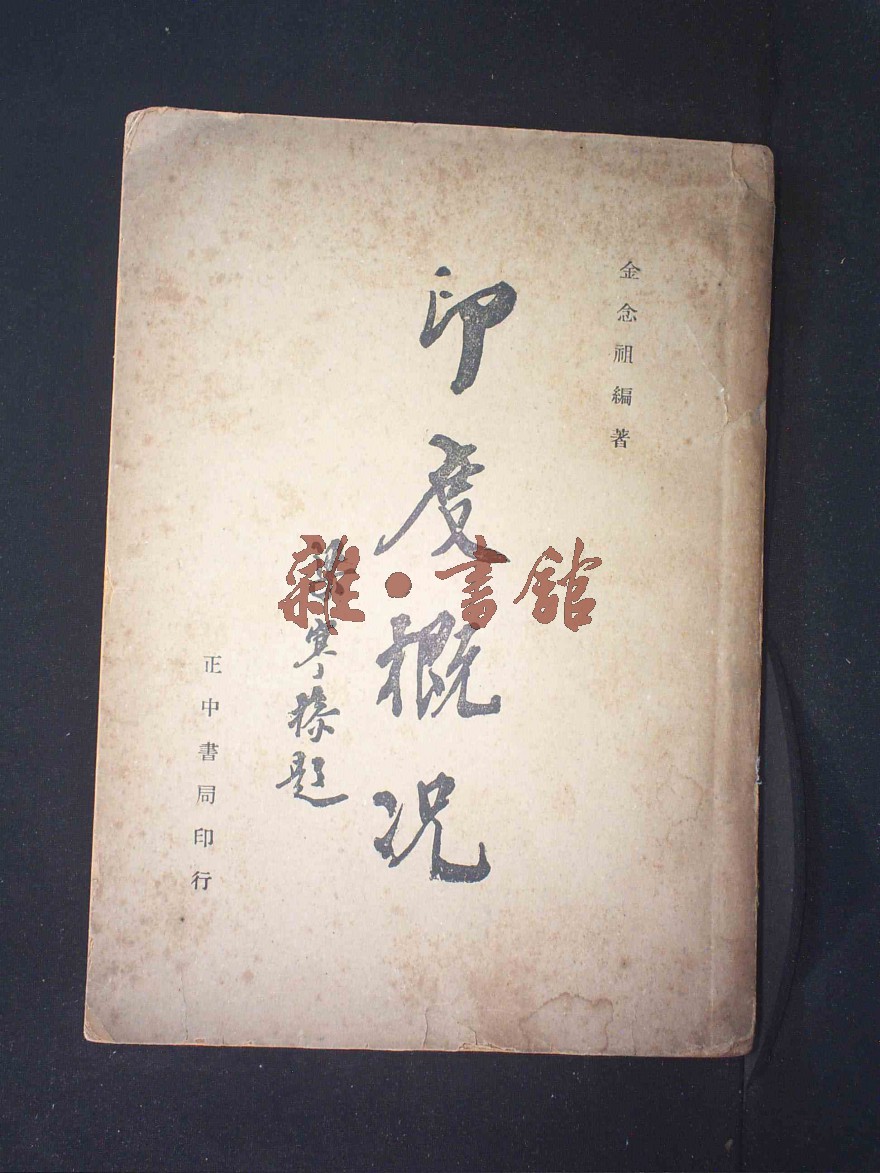 金念祖編著
印度概况
寒操題
正中書局印行
雜·書館